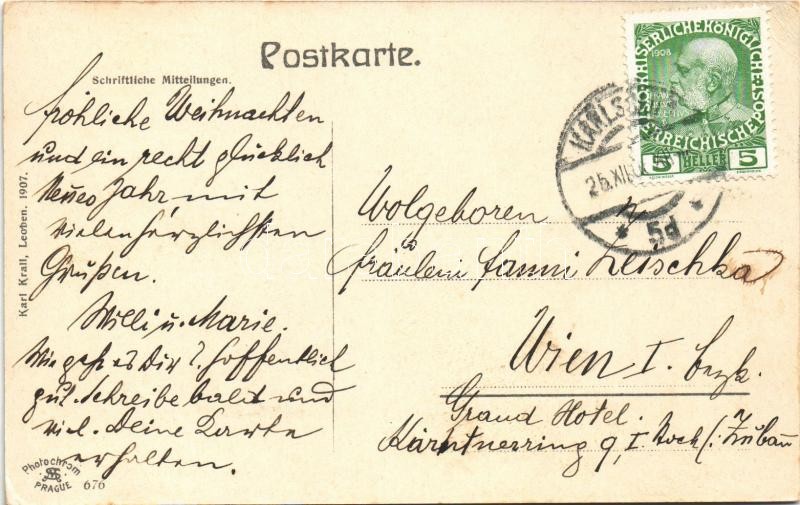 Postkarte.
Schriftliche Mitteilungen.
fröhliche Weihnachten
und ein recht glücklich
Neues Jahr mit
vielen herzlichsten
Grüßen.
Willi u. Marie.
Wie geht es Dir? hoffentlich
gut. Schreibe bald und
viel. Deine Karte
erhalten.
Karl Krall, Leoben. 1907.
Photochrom
PRAGUE
676
KAISERLICHEKÖNIGLICHE
ÖSTERREICHISCHE
1908
5 HELLER 5
25.XII
5d
Wolgeboren
Fräulein Fanni
Wien I. bezk.
Grand Hotel.
Kärntnerring 9, I Stock /: Zubau